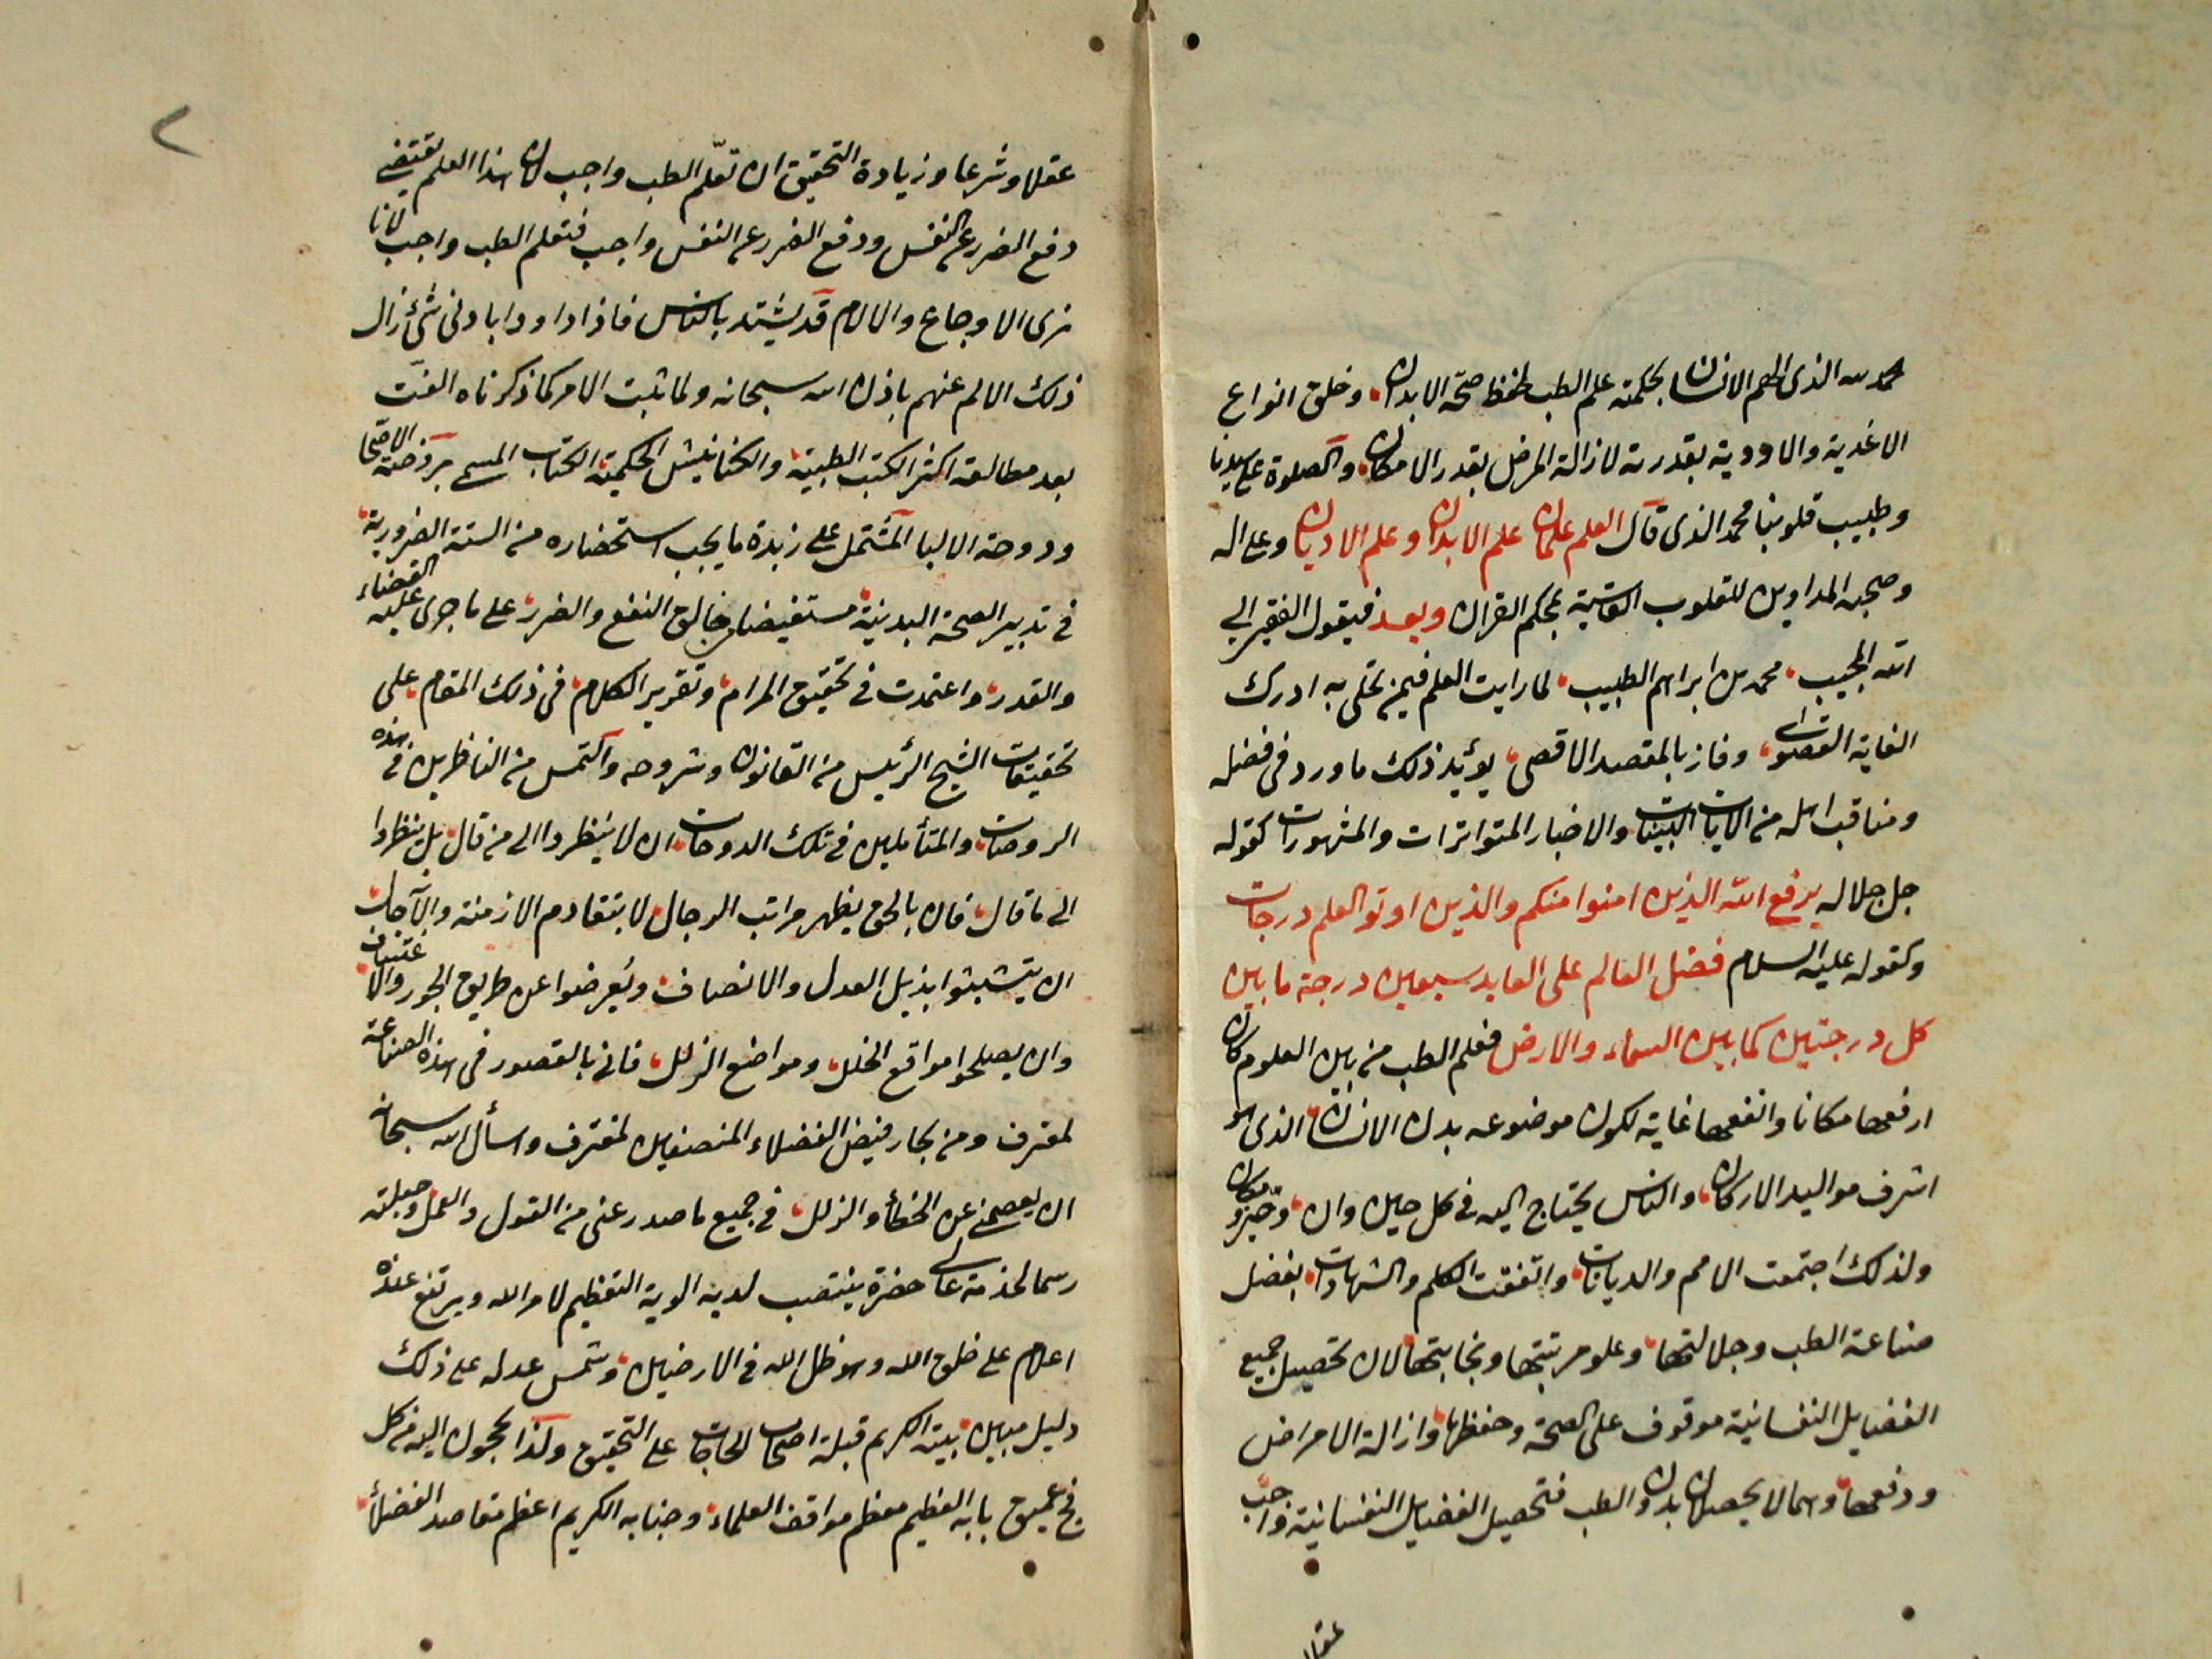 حمد لله الذى الهم الانسان بحكمته علم الطب لحفظ صحة الابدان وخلق انواع
الاغذية والادوية بقدرته لازالة المرض بقدر الامكان والصلوة على سيدنا
وطبيب قلوبنا محمد الذى قال العلم علمان علم الابدان وعلم الاديان وعلى اله
وصحبه المداوين للقلوب القاسية بمحكم القران وبعد فيقول الفقير الى
الله المجيب محمد بن ابراهيم الطبيب لما رايت العلم فيمن تحلى به ادرك
الغاية القصوى وفاز بالمقصد الاقصى يؤيد ذلك ما ورد فى فضله
ومناقب اهله من الايات البينات والاخبار المتواترات والمشهورات كقوله
جل جلاله يرفع الله الذين امنوا منكم والذين اوتو العلم درجات
وكقوله عليه السلام فضل العالم على العابد سبعين درجة ما بين
كل درجتين كما بين السماء والارض فعلم الطب من بين العلوم كان
ارفعها مكانا وانفعها غاية لكون موضوعه بدن الانسان الذى هو
اشرف مواليد الاركان والناس يحتاج اليه فى كل حين وان وحيز ومكان
ولذلك اجتمعت الامم والديانات واتفقت الكلم والشهادات بفضل
صناعة الطب وجلالتها وعلو مرتبتها ونجابتها لان تحصيل جميع
الفضايل النفسانية موقوف على الصحة وحفظها وازالة الامراض
ودفعها وهما لا يحصلان بدون الطب فتحصيل الفضايل النفسانية واجب
عقلا
عقلا وشرعا وزيادة التحقيق ان تعلّم الطب واجب لان هذا العلم يقتضى
دفع الضرر عن النفس ودفع الضرر عن النفس واجب فتعلم الطب واجب لانا
نرى الاوجاع والالام قد يشتد بالناس فاذا داووا بادنى شئ زال
ذلك الالم عنهم باذن الله سبحانه ولما ثبت الامر كما ذكرناه الفت
بعد مطالعة اكثر الكتب الطبية والكنانيش الحكمية الكتاب المسمى بروضة الاصحا
ودوحة الالبا المشتمل على زبدة ما يجب استحضاره من الستة الضرورية
فى تدبير الصحة البدنية مستفيضا من خالق النفع والضرر على ما جرى عليه القضاء
والقدر واعتمدت فى تحقيق المرام وتقرير الكلام فى ذلك المقام على
تحقيقات الشيخ الرئيس من القانون وشروحه والتمس من الناظرين فى هذه
الروضات والمتأملين فى تلك الدوحات ان لا ينظروا الى من قال بل ينظروا
الى ما قال فان بالحق يظهر مراتب الرجال لا بتقادم الازمنة والآجال
ان يتشبثوا بذيل العدل والانصاف ويعرضوا عن طريق الجور والاعتساف
وان يصلحوا مواقع الخلل ومواضع الزلل فانى بالقصور فى هذه الصناعة
لمعترف ومن بحار فيض الفضلاء المنصفين لمغترف واسأل الله سبحانه
ان يعصمنى عن الخطأ والزلل فى جميع ما صدر عنى من القول والعمل وجعلته
رسما لخدمة عالى حضرة ينتصب لديه الوية التعظيم لامر الله ويرتفع عنده
اعلام على خلق الله وهو ظل الله فى الارضين وشمس عدله على ذلك
دليل مبين بيته الكريم قبلة اصحاب الحاجات على التحقيق ولذا يحجون اليه من كل
فج عميق بابه العظيم معظم مواقف العلماء وجنابه الكريم اعظم مقاصد الفضلأ